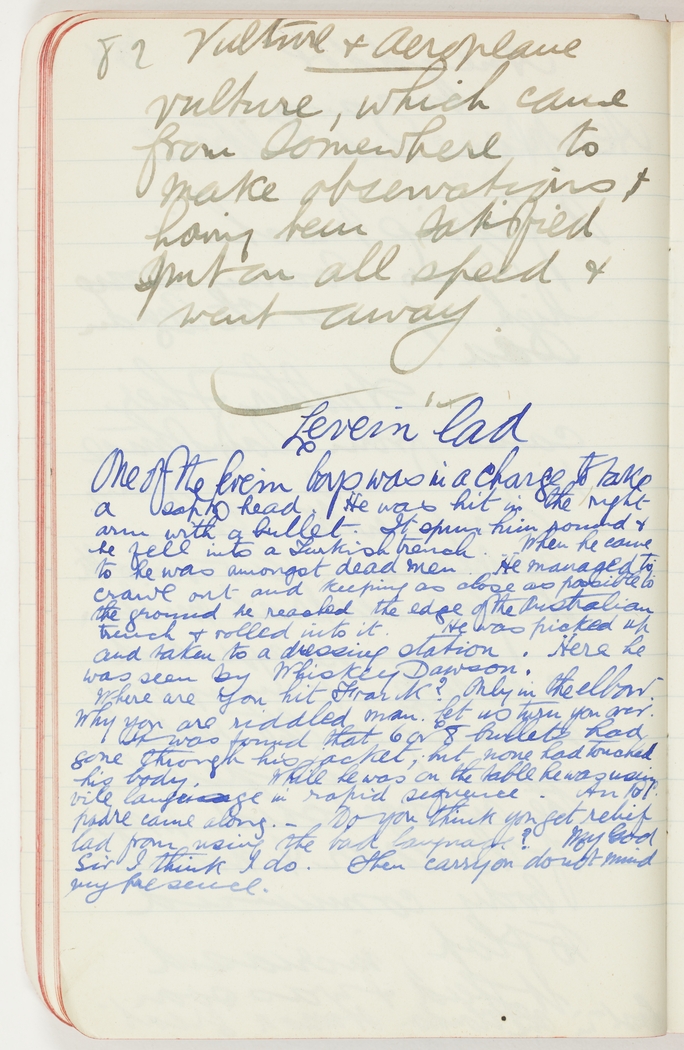 82 Vulture & Aeroplane
vulture, which came
from somewhere to
make observations, &
having been satisfied
put on all speed &
went away
Levein lad
One of the Levein boys was in a charge to take
a sap head. He was hit in the right
arm with a bullet. It spun him round &
he fell into a Turkish trench. When he came
to he was amongst dead men. He managed to
crawl out and keeping as close as possible to
the ground he reached the edge of the Australian
trench & rolled into it. He was picked up
and taken to a dressing station. Here he
was seen by Whiskey Dawson.
Where are you hit Frank? Only in the elbow.
Why you are riddled man. let us turn you over.
It was found that 6 or 8 bullets had
gone through his jacket, but none had touched
his body. While he was on the table he was using
vile language in rapid sequence. An
padre came along. – Do you think you get relief
lad from using the bad language? My God
Sir I think I do. Then carry on do not mind
my presence.